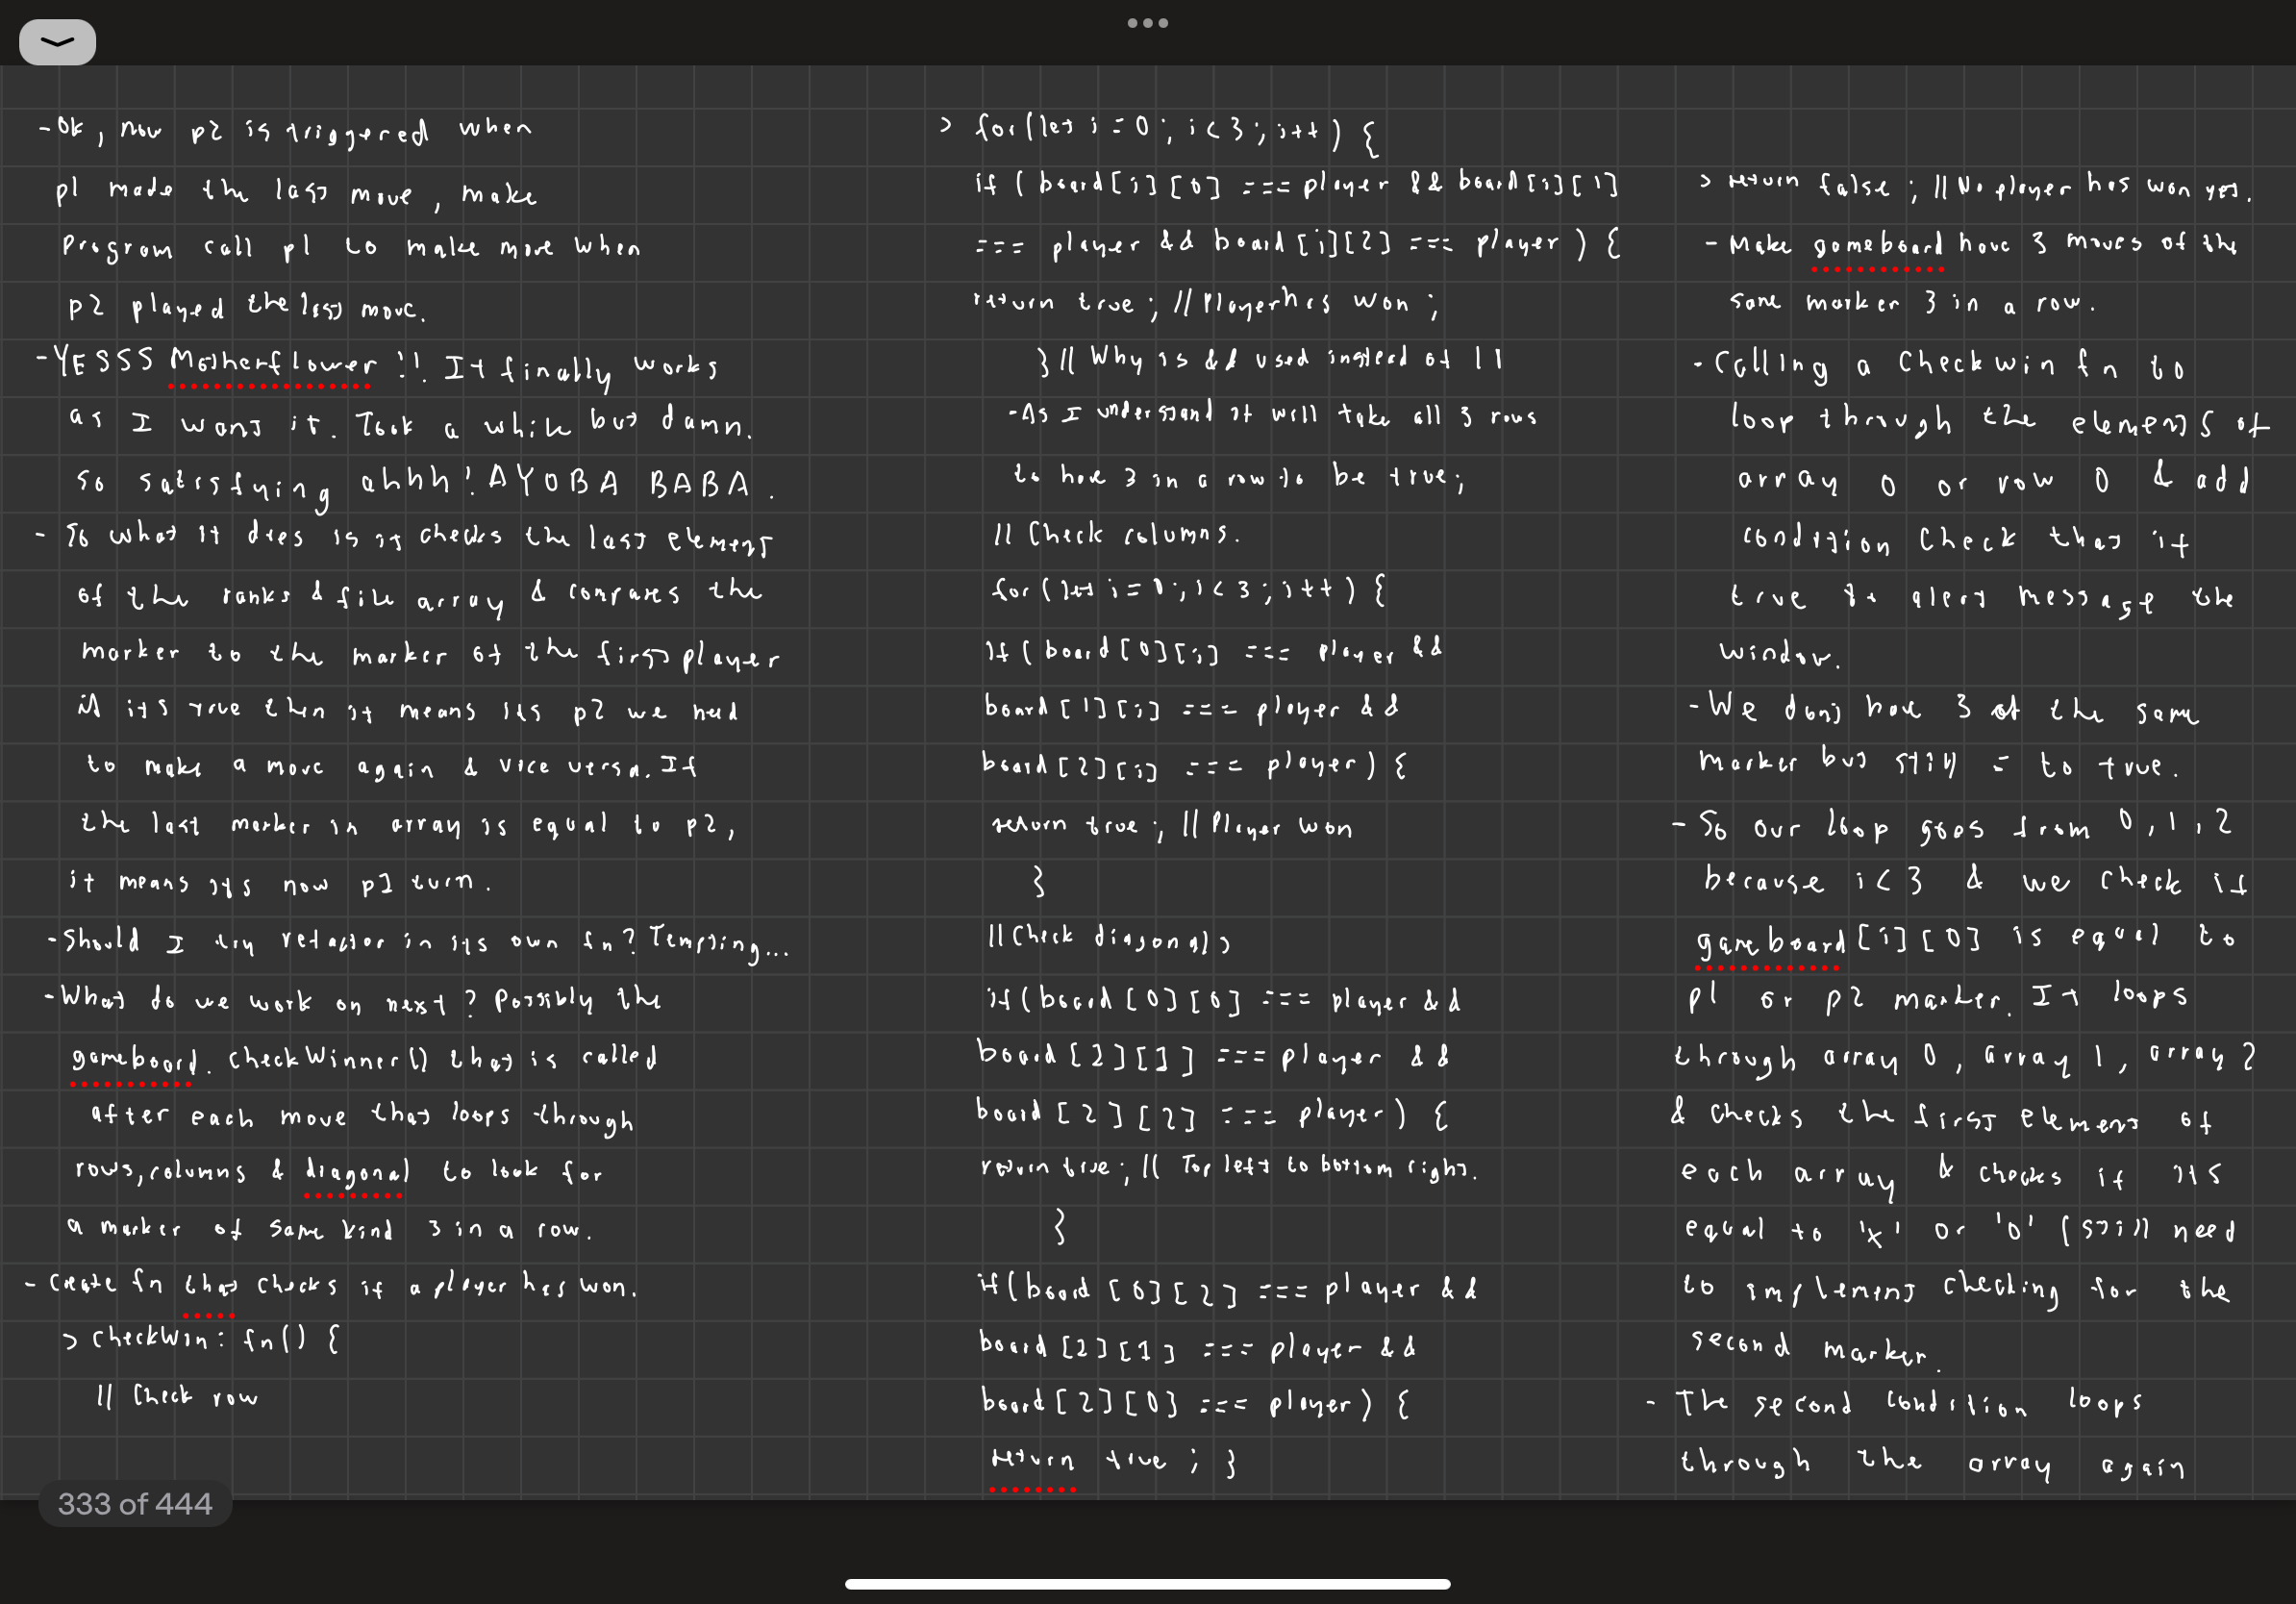 -Ok, now p2 is triggered when
p1 made the last move, make
program call p1 to make move when
p2 played the last move.
-YESSS Motherflower!! It finally works
as I want it. Took a while but damn.
so satisfying ahhh! AYOBA BABA.
- So what it does is it checks the last element
of the ranks & file array & compares the
marker to the marker of the first player
if its true then it means its p2 we need
to make a move again & vice versa. If
the last marker in array is equal to p2,
it means its now p1 turn.
-Should I try refactor in its own fn? Tempting...
-What do we work on next? Possibly the
gameboard. CheckWinner() that is called
after each move that loops through
rows, columns & diagonal to look for
a marker of same kind 3 in a row.
- Create fn that checks if a player has won.
> checkWin: fn() {
// Check row
> for(let i = 0; i < 3; i++) {
if ( board[i][0] === player && board[i][1]
=== player && board[i][2] === player ) {
return true; // Player has won;
} // Why is && used instead of ||
-As I understand it will take all 3 rows
to have 3 in a row to be true;
// Check columns.
for(let i = 0; i < 3; i++) {
If ( board[0][i] === player &&
board[1][i] === player &&
board[2][i] === player) {
return true; // Player won
}
// Check diagonals
if(board[0][0] === player &&
board[2][1] === player &&
board[2][2] === player) {
return true; // Top left to bottom right.
}
if(board[0][2] === player &&
board[2][1] === player &&
board[2][0] === player) {
return true; }
> return false; // No player has won yet.
- Make gameboard have 3 moves of the
same marker 3 in a row.
- Calling a checkwin fn to
loop through the elements of
array 0 or row 0 & add
condition check that if
true to alert message the
window.
-We dont have 3 of the same
marker but still = to true.
- So our loop goes from 0, 1, 2
because i < 3 & we check if
gameboard [i][0] is equal to
p1 or p2 marker. It loops
through array 0, array 1, array 2
& checks the first element of
each array & checks if its
equal to 'x' or 'o' (still need
to implement checking for the
second marker.
- The second condition loops
through the array again
333 of 444